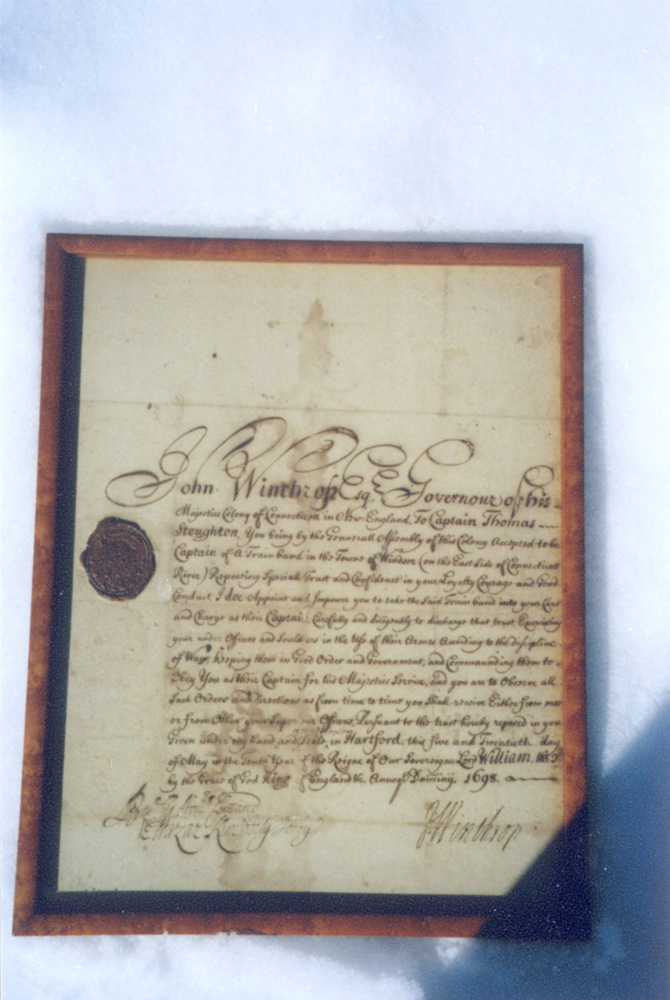 John Winthrop Esq. Governour of his
Majesties Colony of Connecticut in New-England, To Captain Thomas
Stoughton, You being by the Generall Assembly of this Colony Accepted to be
Captain of A Train band in the Towne of Windsor (on the East Side of Connecticutt
River) Reposeing Speciall Trust and Confidence in your Loyalty Courage and Good
Conduct I doe Appoint and Impower you to take the said Train band into your Care
and Charge as their Captain, Carefully and diligently to discharge that trust Exerciseing
your under Officers and Souldiers in the Use of their Armes According to the discipline
of Warr, keeping them in Good Order and Government, and Commanding them to
Obey You as their Captain for his Majesties Service, and you are to Observe all
Such Orders and directions as from time to time you shall receive Either from mee
or from Other your Superior Officers, Pursuant to the trust hereby reposed in you
Given under my hand and Seale, in Hartford, this five and Twentieth day
of May in the Tenth Year of the Reigne of Our Sovereigne Lord William the 3d
by the Grace of God King of England &c. Annoq Domini, 1698.
By
Eleazar Kimberly Secry
J Winthrop